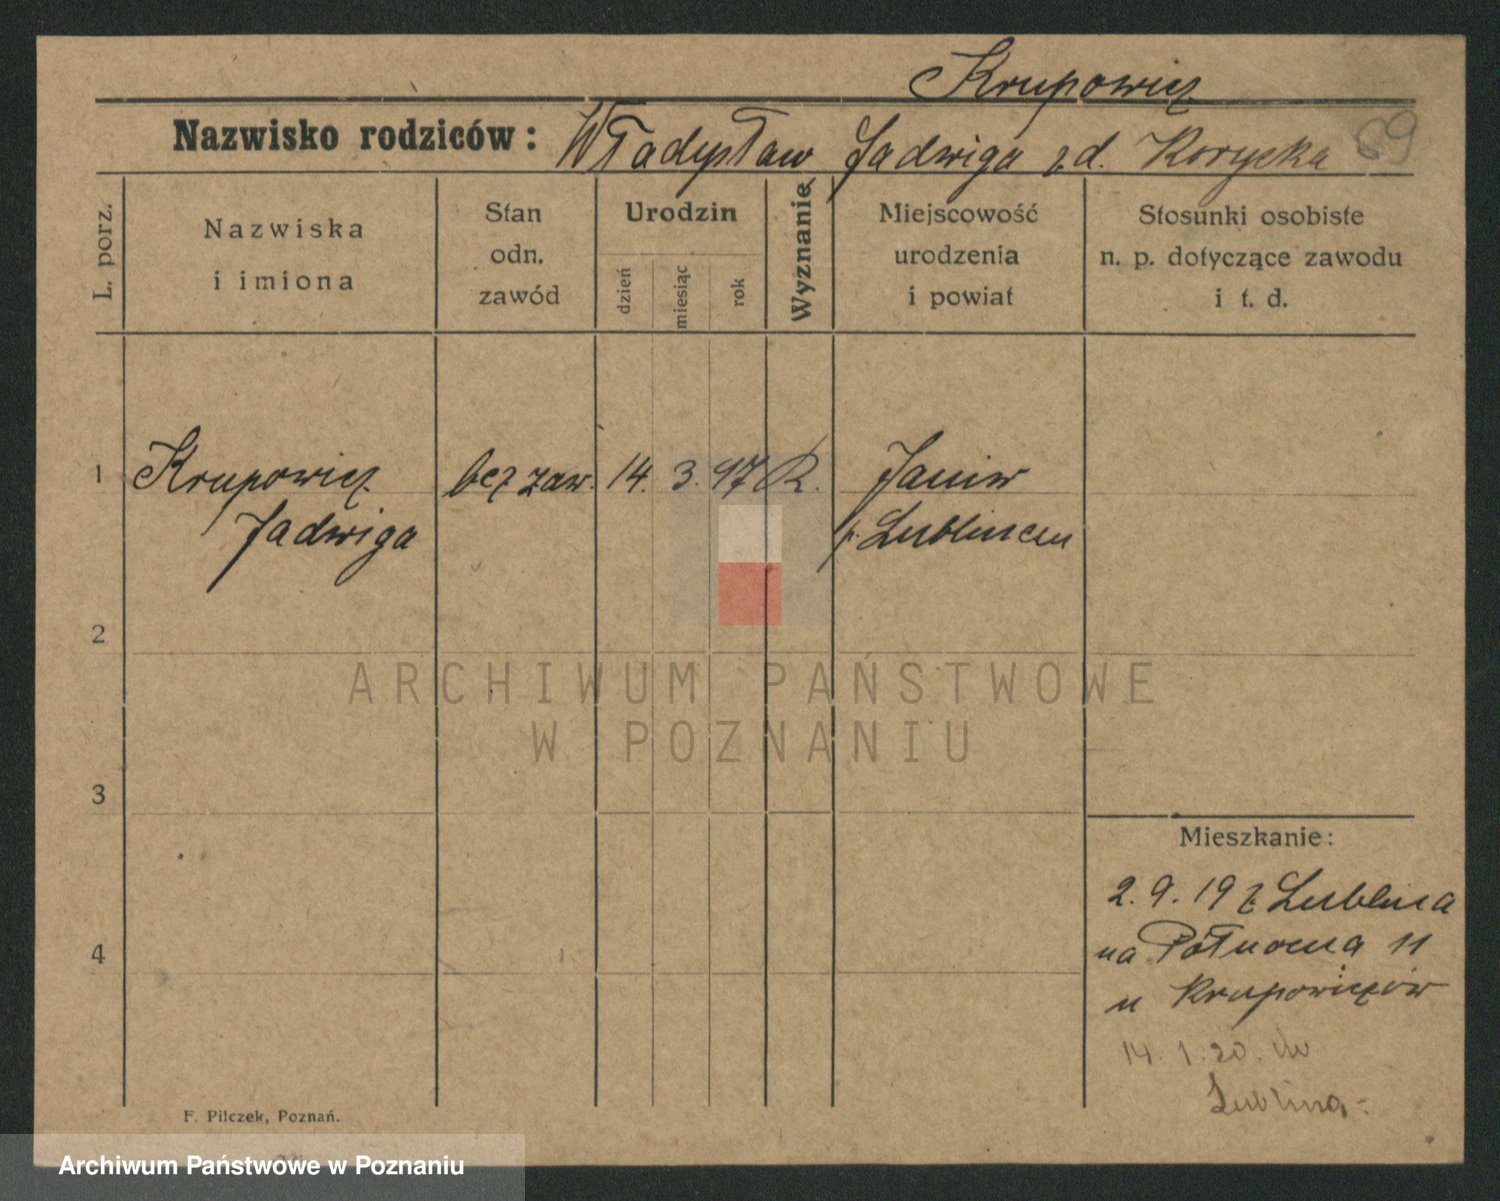 Krupowicz
Nazwisko rodziców: Władysław Jadwiga z.d. Korycka 69
L. porz.
Nazwiska i imiona
Stan odn. zawód
Urodzin
dzień miesiąc rok
Wyznanie
Miejscowość urodzenia i powiat
Stosunki osobiste n. p. dotyczące zawodu i t. d.
1 Krupowicz bez zaw. 14. 3. 97 R. Janiw
Jadwiga p. Lublincem
2
3
4
ARCHIWUM PAŃSTWOWE
W POZNANIU
Mieszkanie:
2.9.19 z Lublina
na Północna 11
u Krupowiczów
14.1.20. do
Lublina-
F. Pilczek, Poznań.
Archiwum Państwowe w Poznaniu